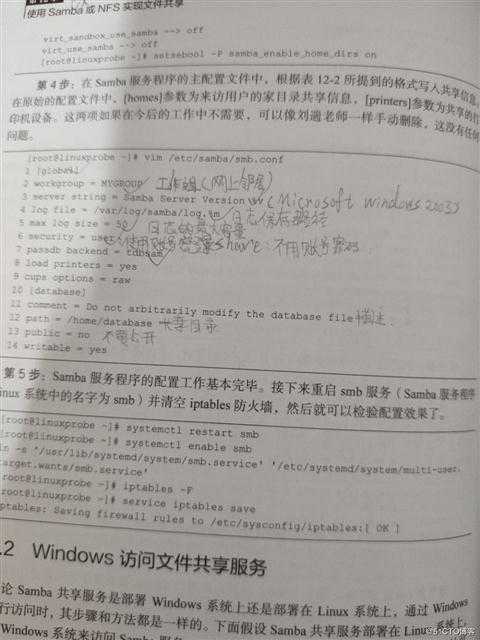 使用 Samba 或 NFS 实现文件共享
virt_sandbox_use_samba --> off
virt_use_samba --> off
[root@linuxprobe ~]# setsebool -P samba_enable_home_dirs on
第 4 步：在 Samba 服务程序的主配置文件中，根据表 12-2 所提到的格式写入共享信息。
在原始的配置文件中，[homes]参数为来访用户的家目录共享信息，[printers]参数为共享的打
印机设备。这两项如果在今后的工作中不需要，可以像刘遄老师一样手动删除，这没有任何
问题。
[root@linuxprobe ~]# vim /etc/samba/smb.conf
1 [global]
2 workgroup = MYGROUP 工作组(网上邻居)
3 server string = Samba Server Version %v (Microsoft windows 2003)
4 log file = /var/log/samba/log.%m 日志保存路径
5 max log size = 50 日志的最大容量
6 security = user 使用账号密码 share：不用账号密码
7 passdb backend = tdbsam
8 load printers = yes
9 cups options = raw
10 [database]
11 comment = Do not arbitrarily modify the database file 描述
12 path = /home/database 共享目录
13 public = no 不要公开
14 writable = yes
第 5 步：Samba 服务程序的配置工作基本完毕。接下来重启 smb 服务（Samba 服务程序
inux 系统中的名字为 smb）并清空 iptables 防火墙，然后就可以检验配置效果了。
[root@linuxprobe ~]# systemctl restart smb
[root@linuxprobe ~]# systemctl enable smb
ln -s '/usr/lib/systemd/system/smb.service' '/etc/systemd/system/multi-user.
target.wants/smb.service'
root@linuxprobe ~]# iptables -F
root@linuxprobe ~]# service iptables save
ptables: Saving firewall rules to /etc/sysconfig/iptables:[ OK ]
.2 Windows 访问文件共享服务
论 Samba 共享服务是部署 Windows 系统上还是部署在 Linux 系统上，通过 Windows
行访问时，其步骤和方法都是一样的。下面假设 Samba 共享服务部署在 Linux 系统上，
Windows 系统来访问 Samba
@51CTO博客